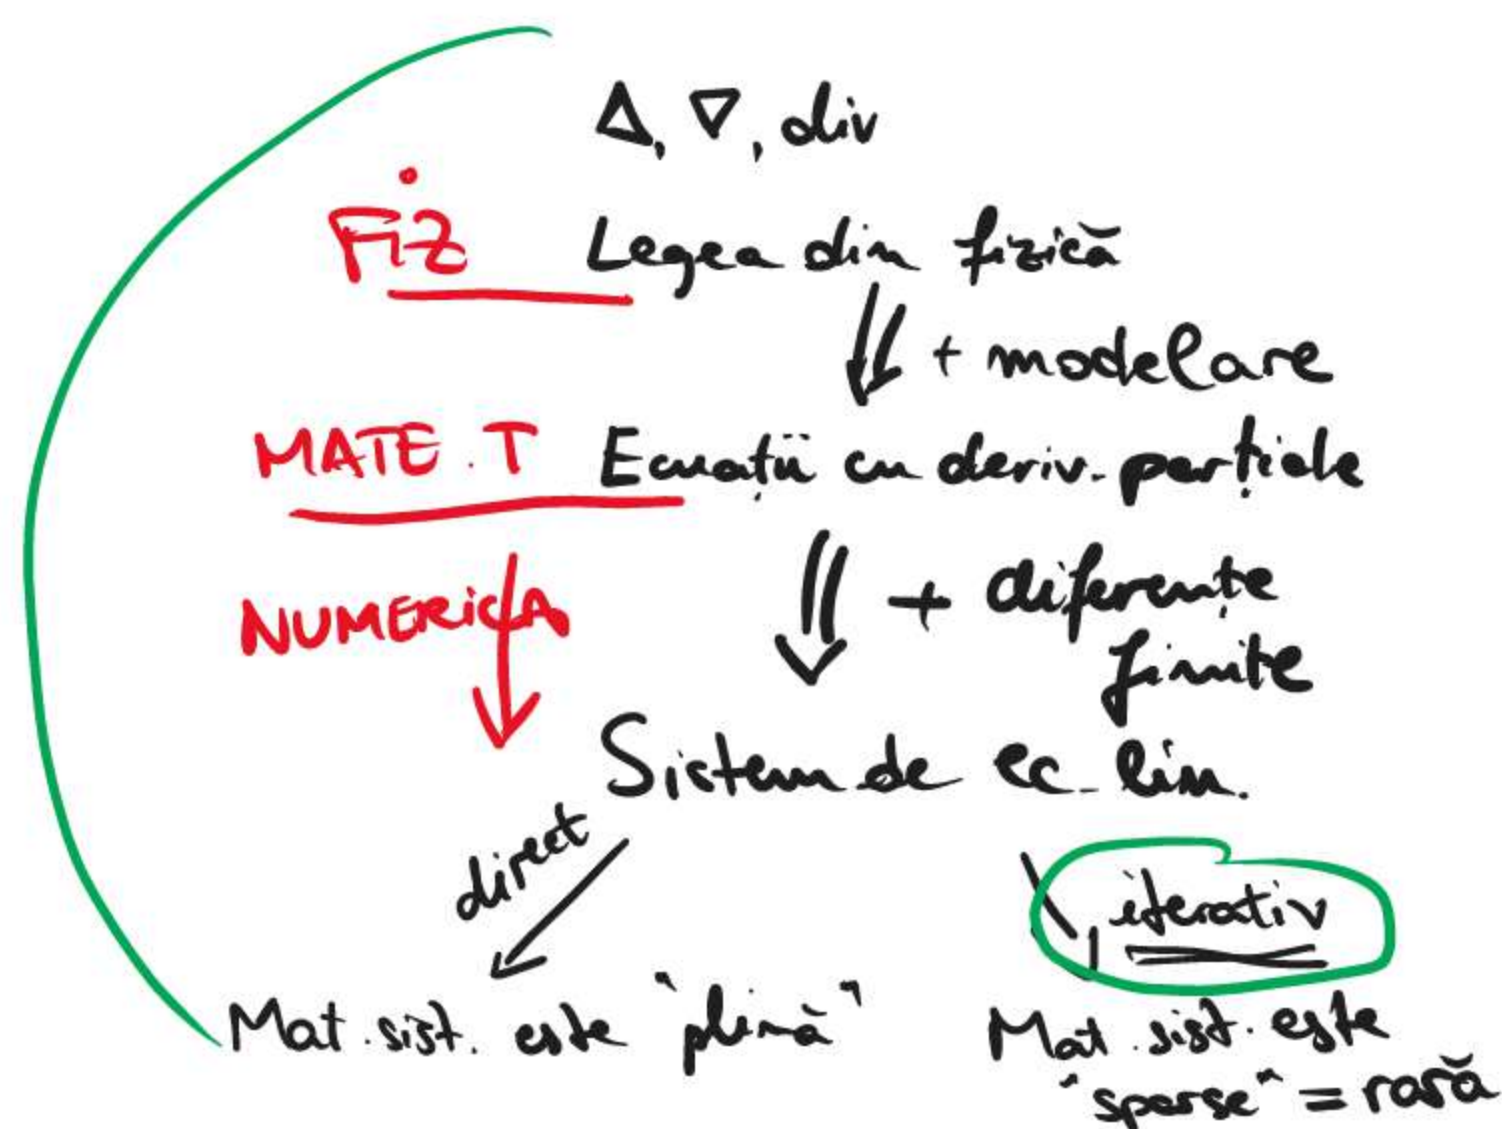 Δ, ∇, div
FiZ Legea din fizică
+ modelare
MATE. T Ecuații cu deriv. parțiale
NUMERICA + diferențe
finite
Sistem de ec. lin.
direct
iterativ
Mat. sist. este "plină" Mat. sist. este
"sparse" = rară